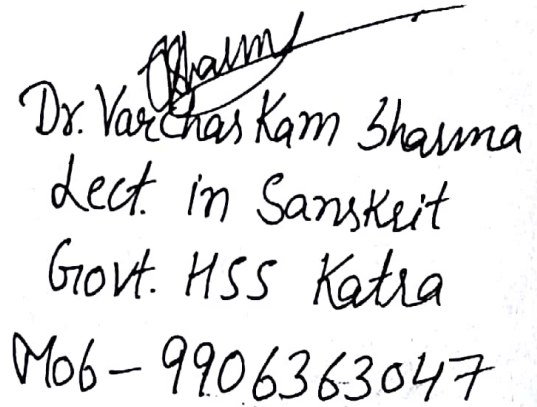 Dr. Varchas Kam Sharma
Lect. in Sanskrit
Govt. HSS Katra
Mob - 9906363047